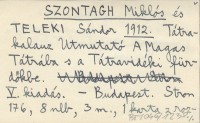 SZONTAGH Miklós és
TELEKI Sándor 1912. Tátra-
kalauz Utmutató A Magas
Tátrába s a Tátravidéki für-
dőkbe.
V. kiadás. - Budapest. Stron
176, 8 nlb, 3 m., 1 karta